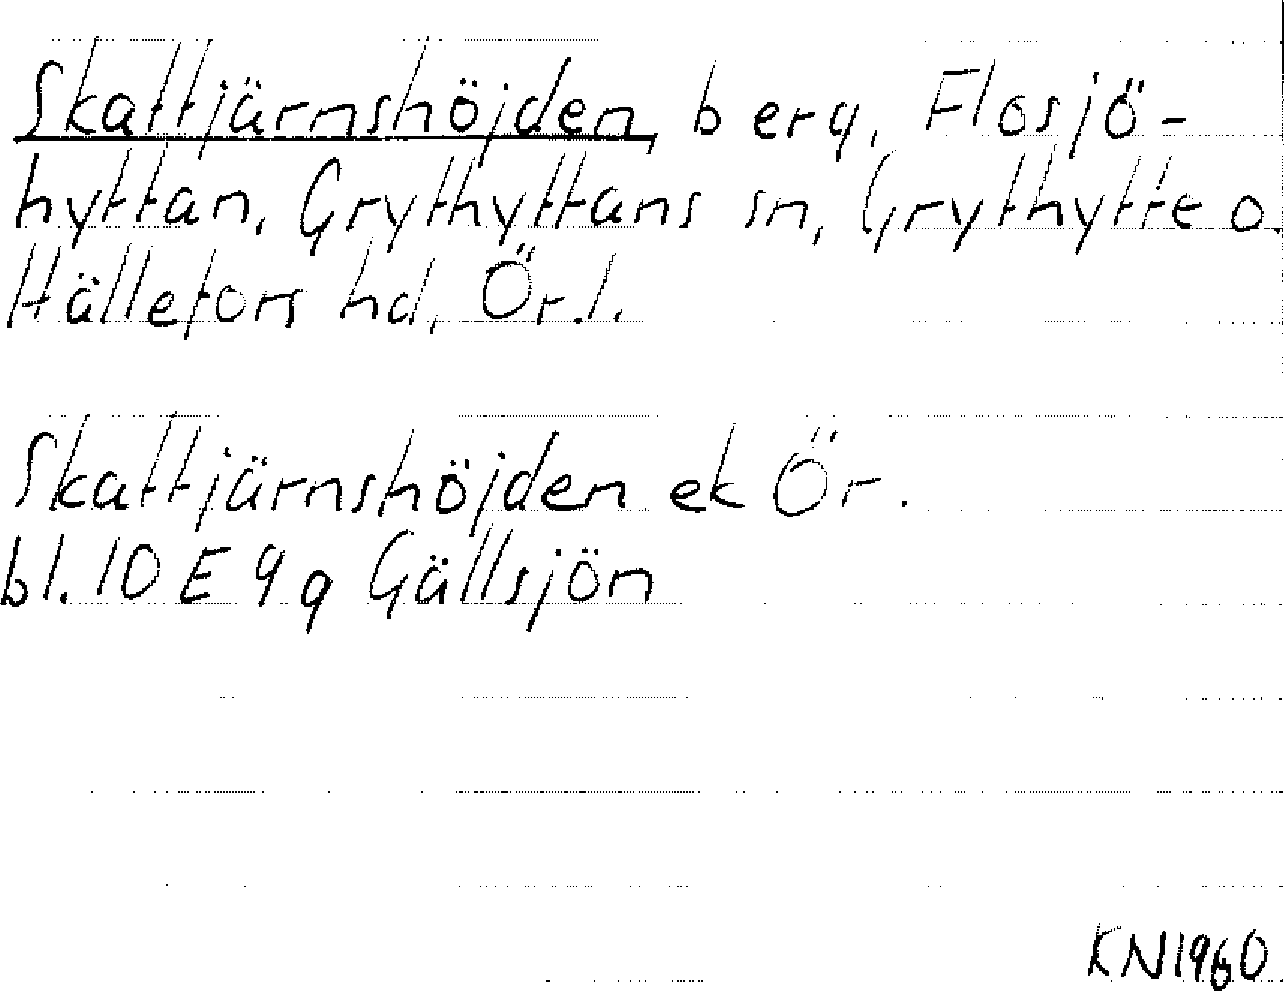 Skattjärnshöjden, berg, Flosjö-
hyttan, Grythyttans sn, Grythytte o.
Hällefors hd, Ör.l.
Skattjärnshöjden ek Ör.
bl. 10 E 9 g Gällsjön
KN1960